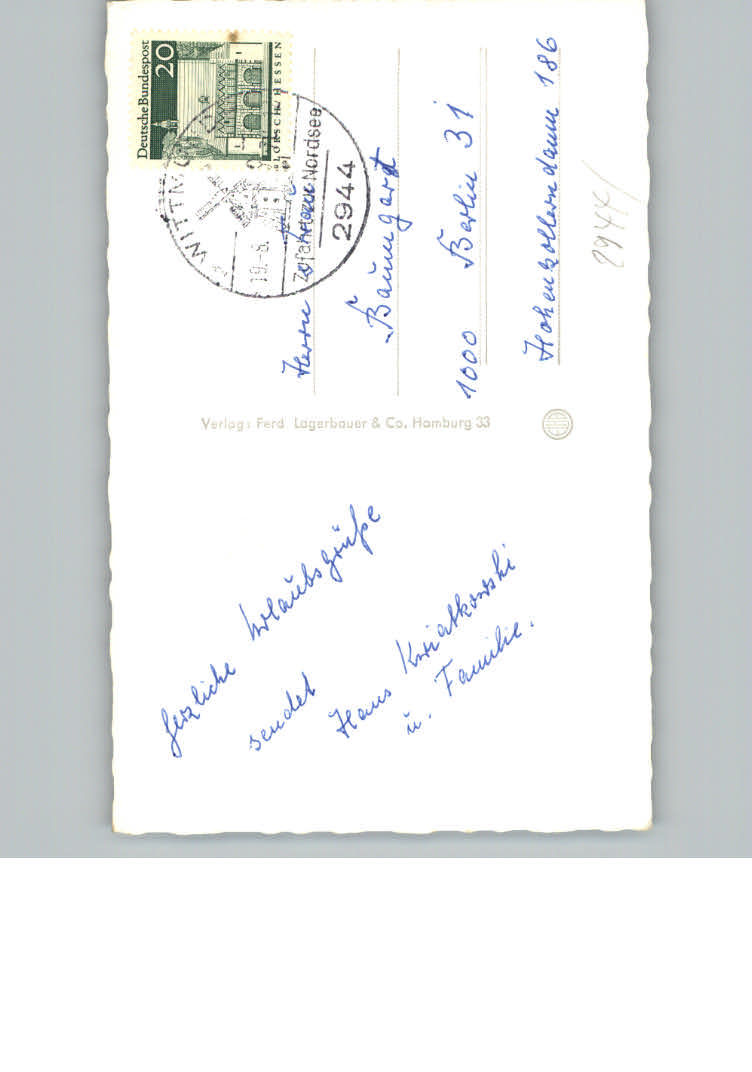 herzliche Urlaubsgrüße
sendet
Hans Kwiatkowski
u. Familie.
Verlag: Ferd Lagerbauer & Co. Hamburg 33
Deutsche Bundespost
20
LORSCH/HESSEN
WITTM
19.-8.
Zufahrt zur Nordsee
2944
Herrn u. Frau
Baumgart
1000 Berlin 31
Hohenzollerndamm 186
2944/